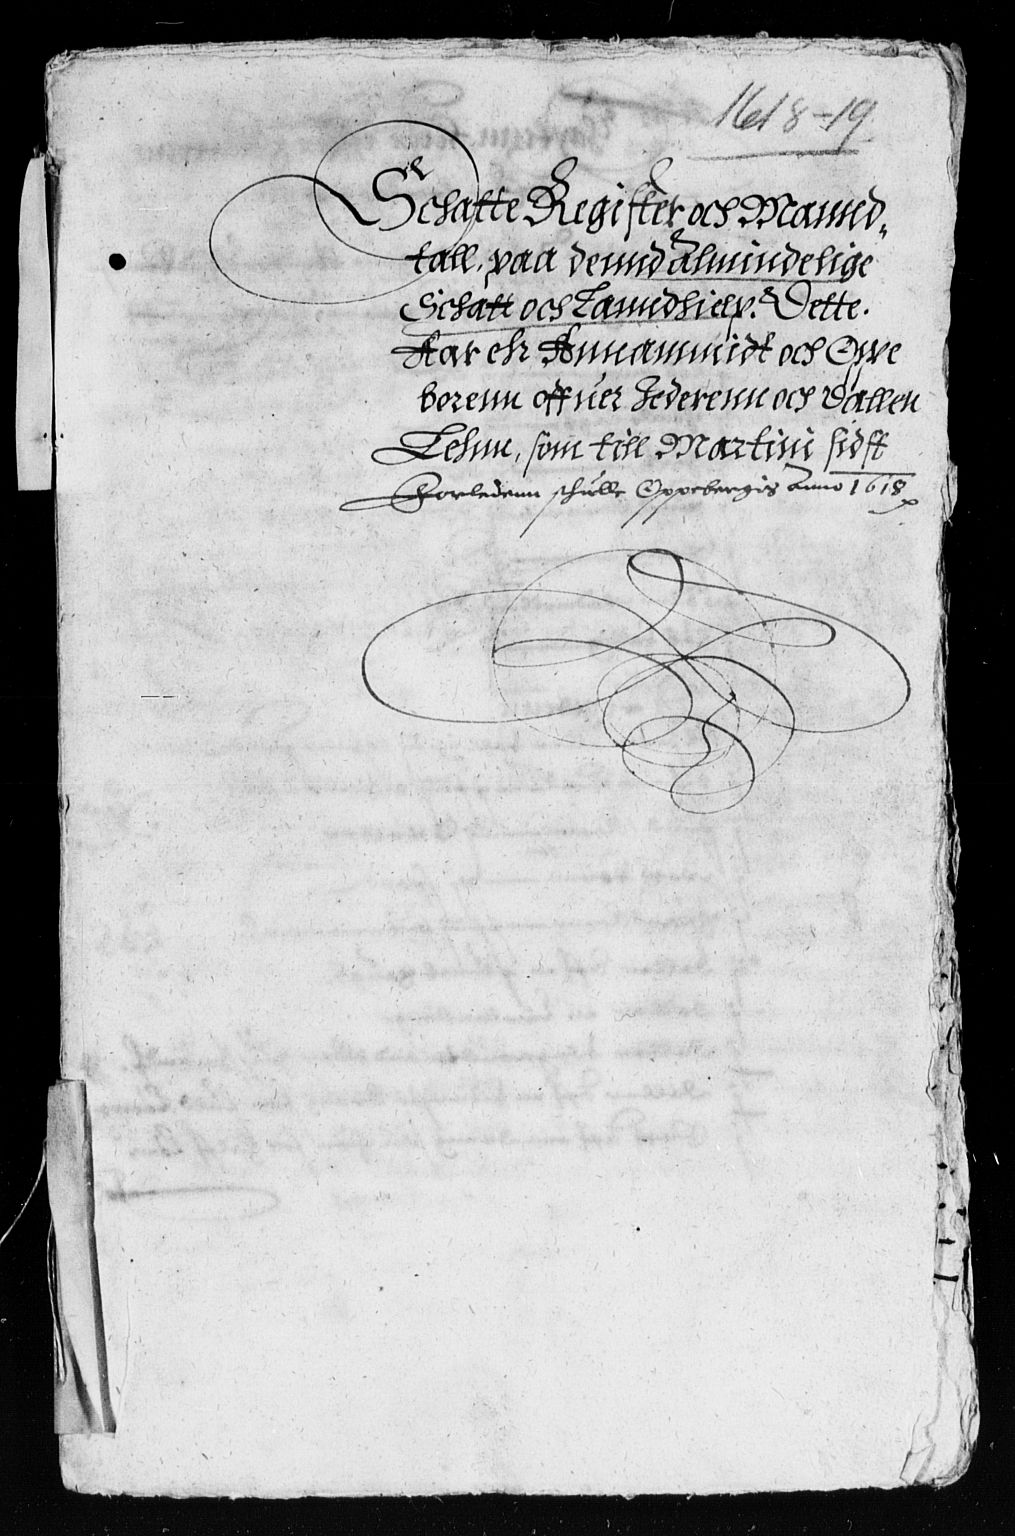 1618-19
Schatte Register och Mannd,
tall, paa dennd Almindelige
Schatt och Lanndhielp. Dette.
Aar ehr Annammidt och Oppe
borenn offuer Jederenn och Dallen
Lehnn, som till Martini sidst
Forledenn schulle Oppebergis Anno 1618